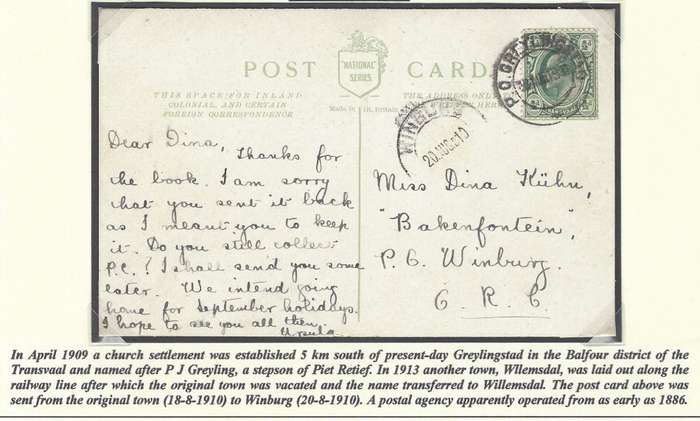 POST CARD
"NATIONAL"
SERIES
THIS SPACE FOR INLAND
COLONIAL, AND CERTAIN
FOREIGN CORRESPONDENCE
Made in Gt. Britain
THE ADDRESS ONLY
HERE
P.O. GREYLINGSTAD
WINBURG
20 AUG 10
Dear Dina,
Thanks for
the book. I am sorry
that you sent it back
as I meant you to keep
it. Do you still collect
P.C.? I shall send you some
later. We intend going
home for September holidays.
I hope to see you all then.
Ursula
Miss Dina Kühn,
"Bakenfontein",
P.O. Winburg.
O. R. C.
In April 1909 a church settlement was established 5 km south of present-day Greylingstad in the Balfour district of the
Transvaal and named after P J Greyling, a stepson of Piet Retief. In 1913 another town, Wllemsdal, was laid out along the
railway line after which the original town was vacated and the name transferred to Willemsdal. The post card above was
sent from the original town (18-8-1910) to Winburg (20-8-1910). A postal agency apparently operated from as early as 1886.